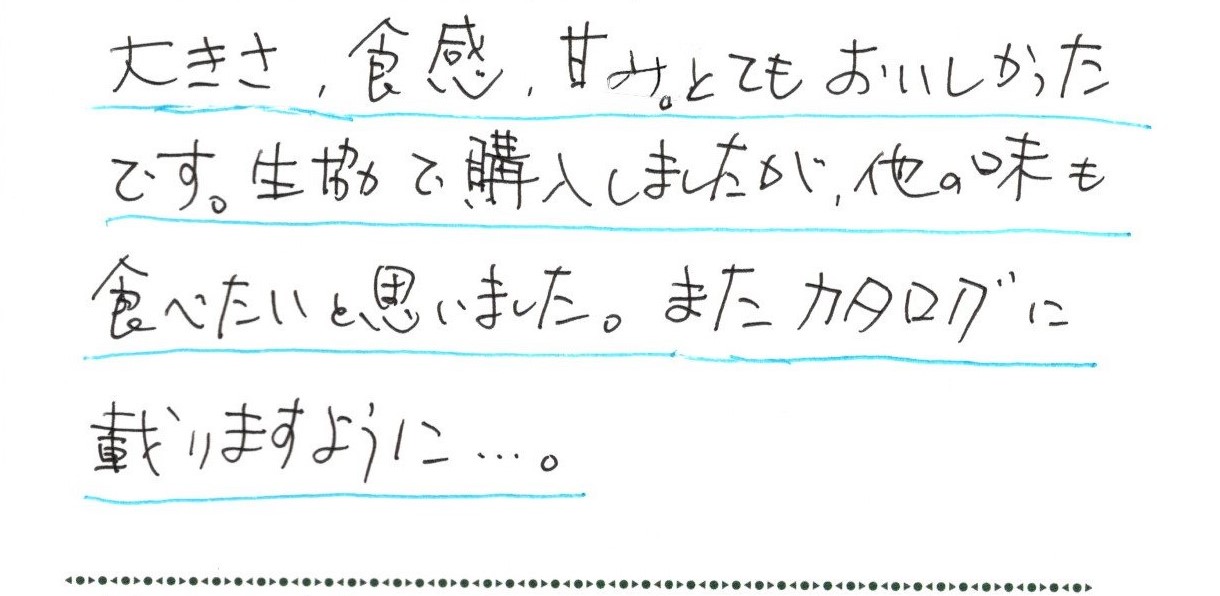 大きさ、食感、甘み。とてもおいしかった
です。生協で購入しましたが、他の味も
食べたいと思いました。またカタログに
載りますように…。